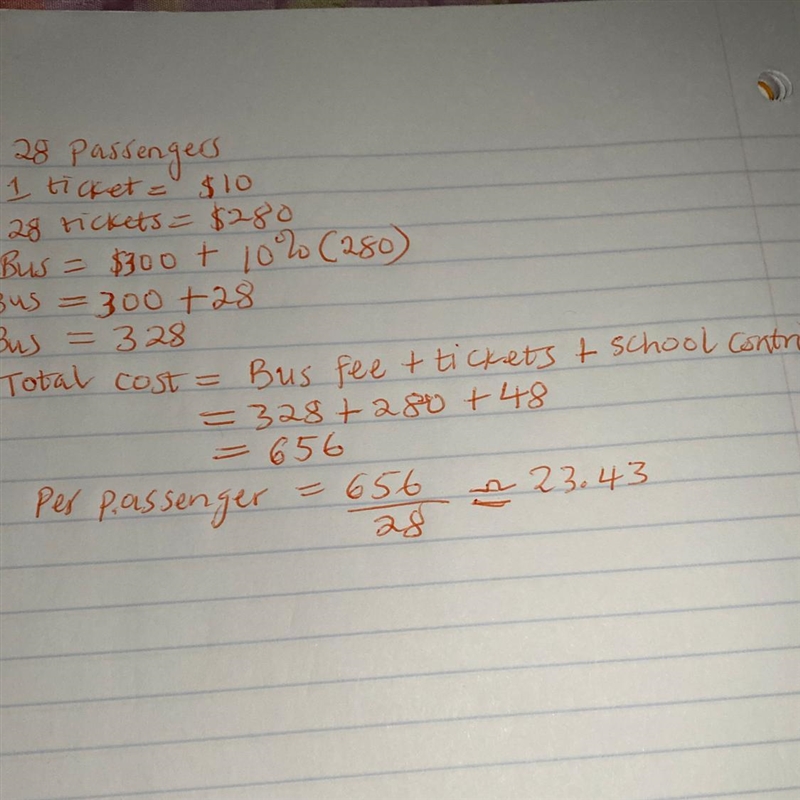 28 Passengers
1 ticket = $10
28 tickets = $280
Bus = $300 + 10% (280)
Bus = 300 + 28
Bus = 328
Total cost = Bus fee + tickets + school contri
= 328 + 280 + 48
= 656
Per passenger = 656/28 ≃ 23.43